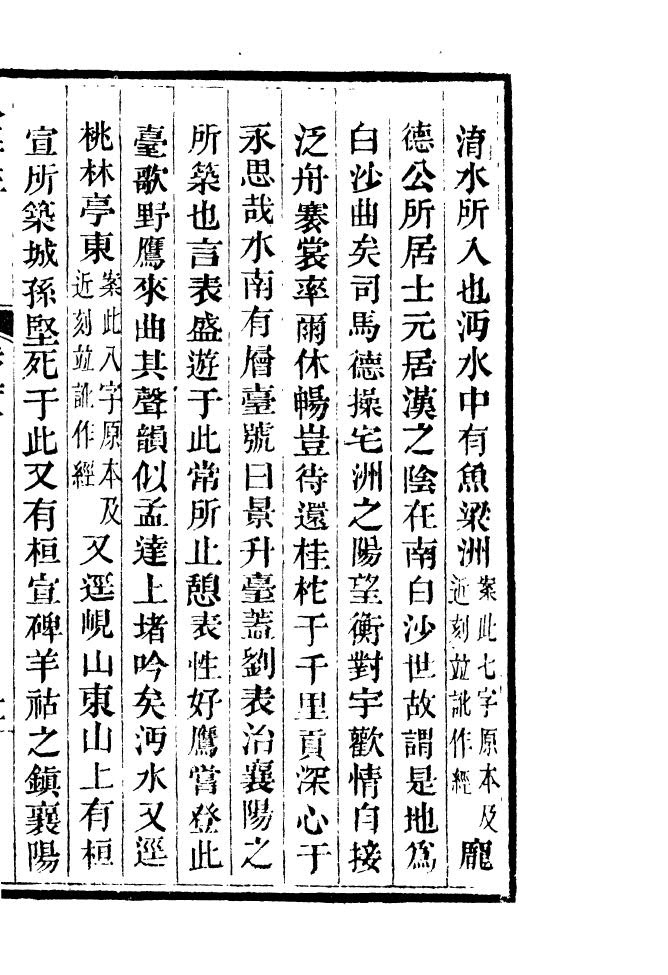 淯水所入也沔水中有魚梁洲案此七字原本及近刻竝訛作經龐
德公所居士元居漢之陰在南白沙世故謂是地爲
白沙曲矣司馬德操宅洲之陽望衡對宇歡情自接
泛舟褰裳率爾休暢豈待還桂柁于千里貢深心于
永思哉水南有層臺號曰景升臺蓋劉表治襄陽之
所築也言表盛遊于此常所止憩表性好鷹嘗登此
臺歌野鷹來曲其聲韻似孟達上堵吟矣沔水又逕
桃林亭東案此八字原本及近刻竝訛作經又逕峴山東山上有桓
宣所築城孫堅死于此又有桓宣碑羊祜之鎮襄陽